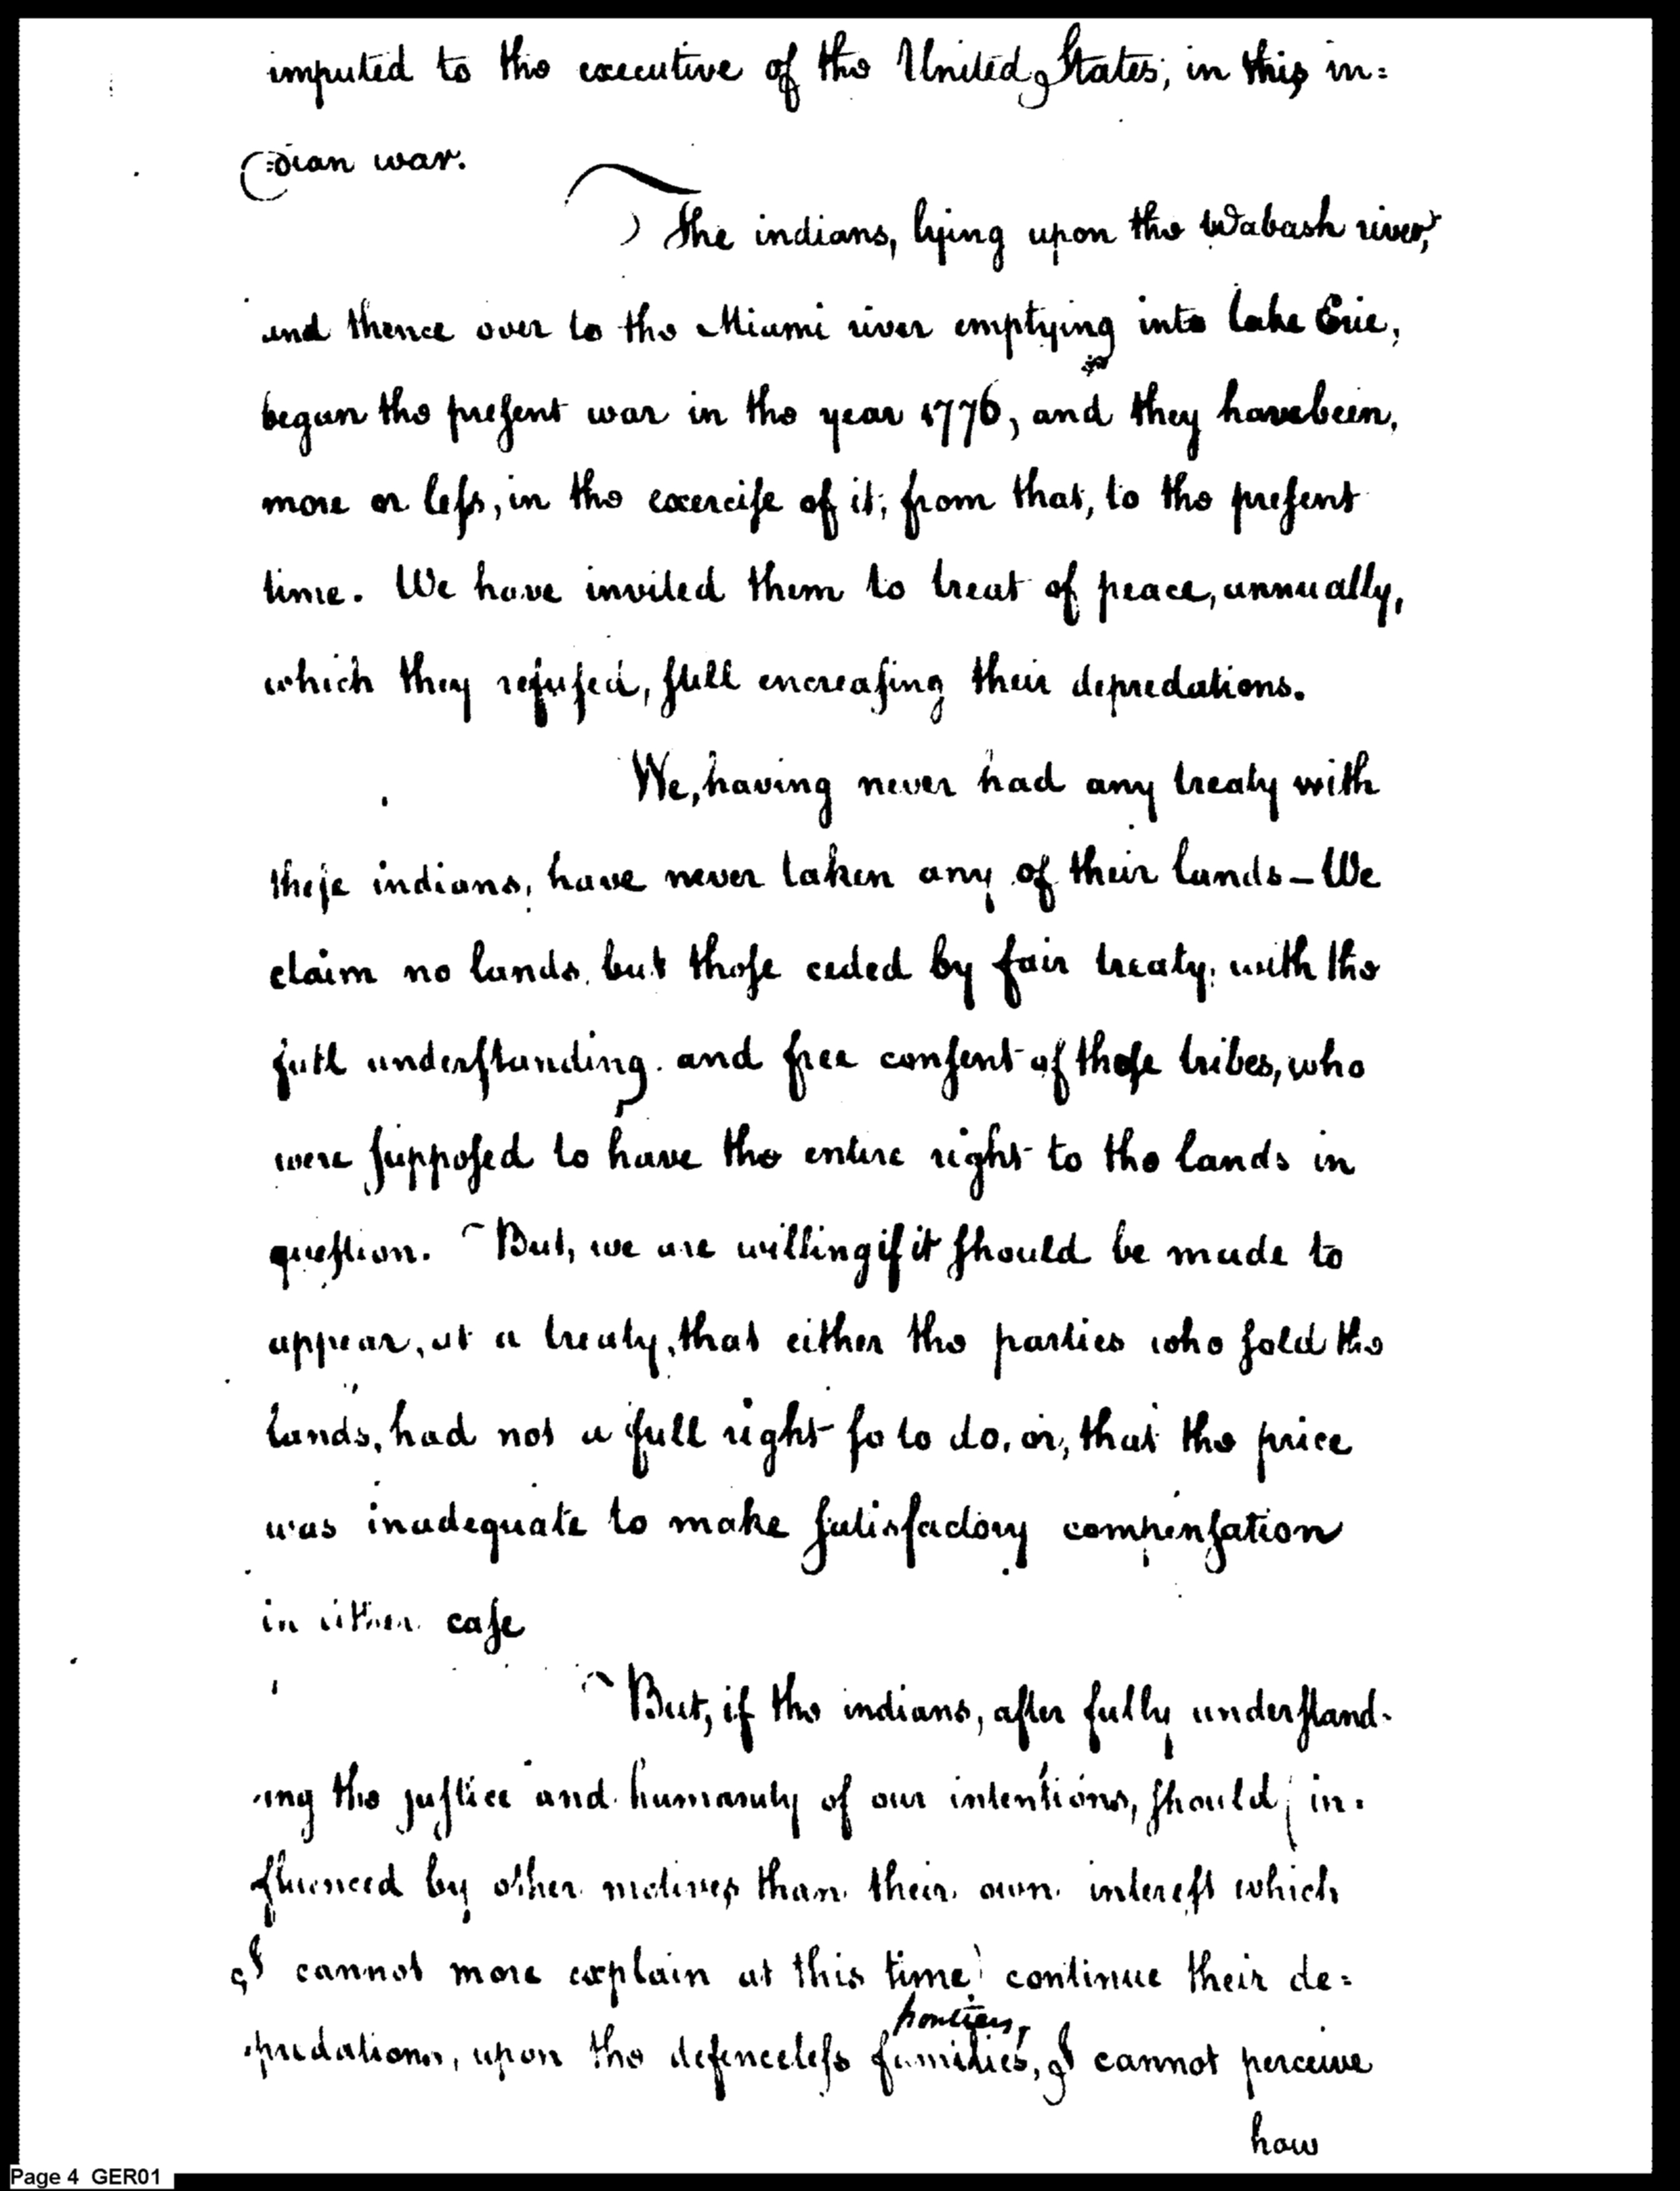 imputed to the executive of the United States, in this in=
=dian war.
The indians, lying upon the Wabash river,
and thence over to the Miami river emptying into lake Erie,
began the preſent war in the year 1776, and they have been,
more or leſs, in the exerciſe of it, from that, to the preſent
time. We have invited them to treat of peace, annually,
which they refuſed, ſtill encreaſing their depredations.
We, having never had any treaty with
theſe indians, have never taken any of their lands – We
claim no lands, but thoſe ceded by fair treaty, with the
full underſtanding, and free conſent of thoſe tribes, who
were ſuppoſed to have the entire right to the lands in
queſtion. But, we are willing if it ſhould be made to
appear, at a treaty, that either the parties who ſold the
lands, had not a full right ſo to do, or, that the price
was inadequate to make ſatisfactory compenſation
in either caſe
But, if the indians, after fully underſtand-
-ing the juſtice and humanity of our intentions, ſhould, in-
fluenced by other motives than their own intereſt which
I cannot more explain at this time, continue their de=
frontiers,
-predations, upon the defenceleſs families, I cannot perceive
how
Page 4 GER01